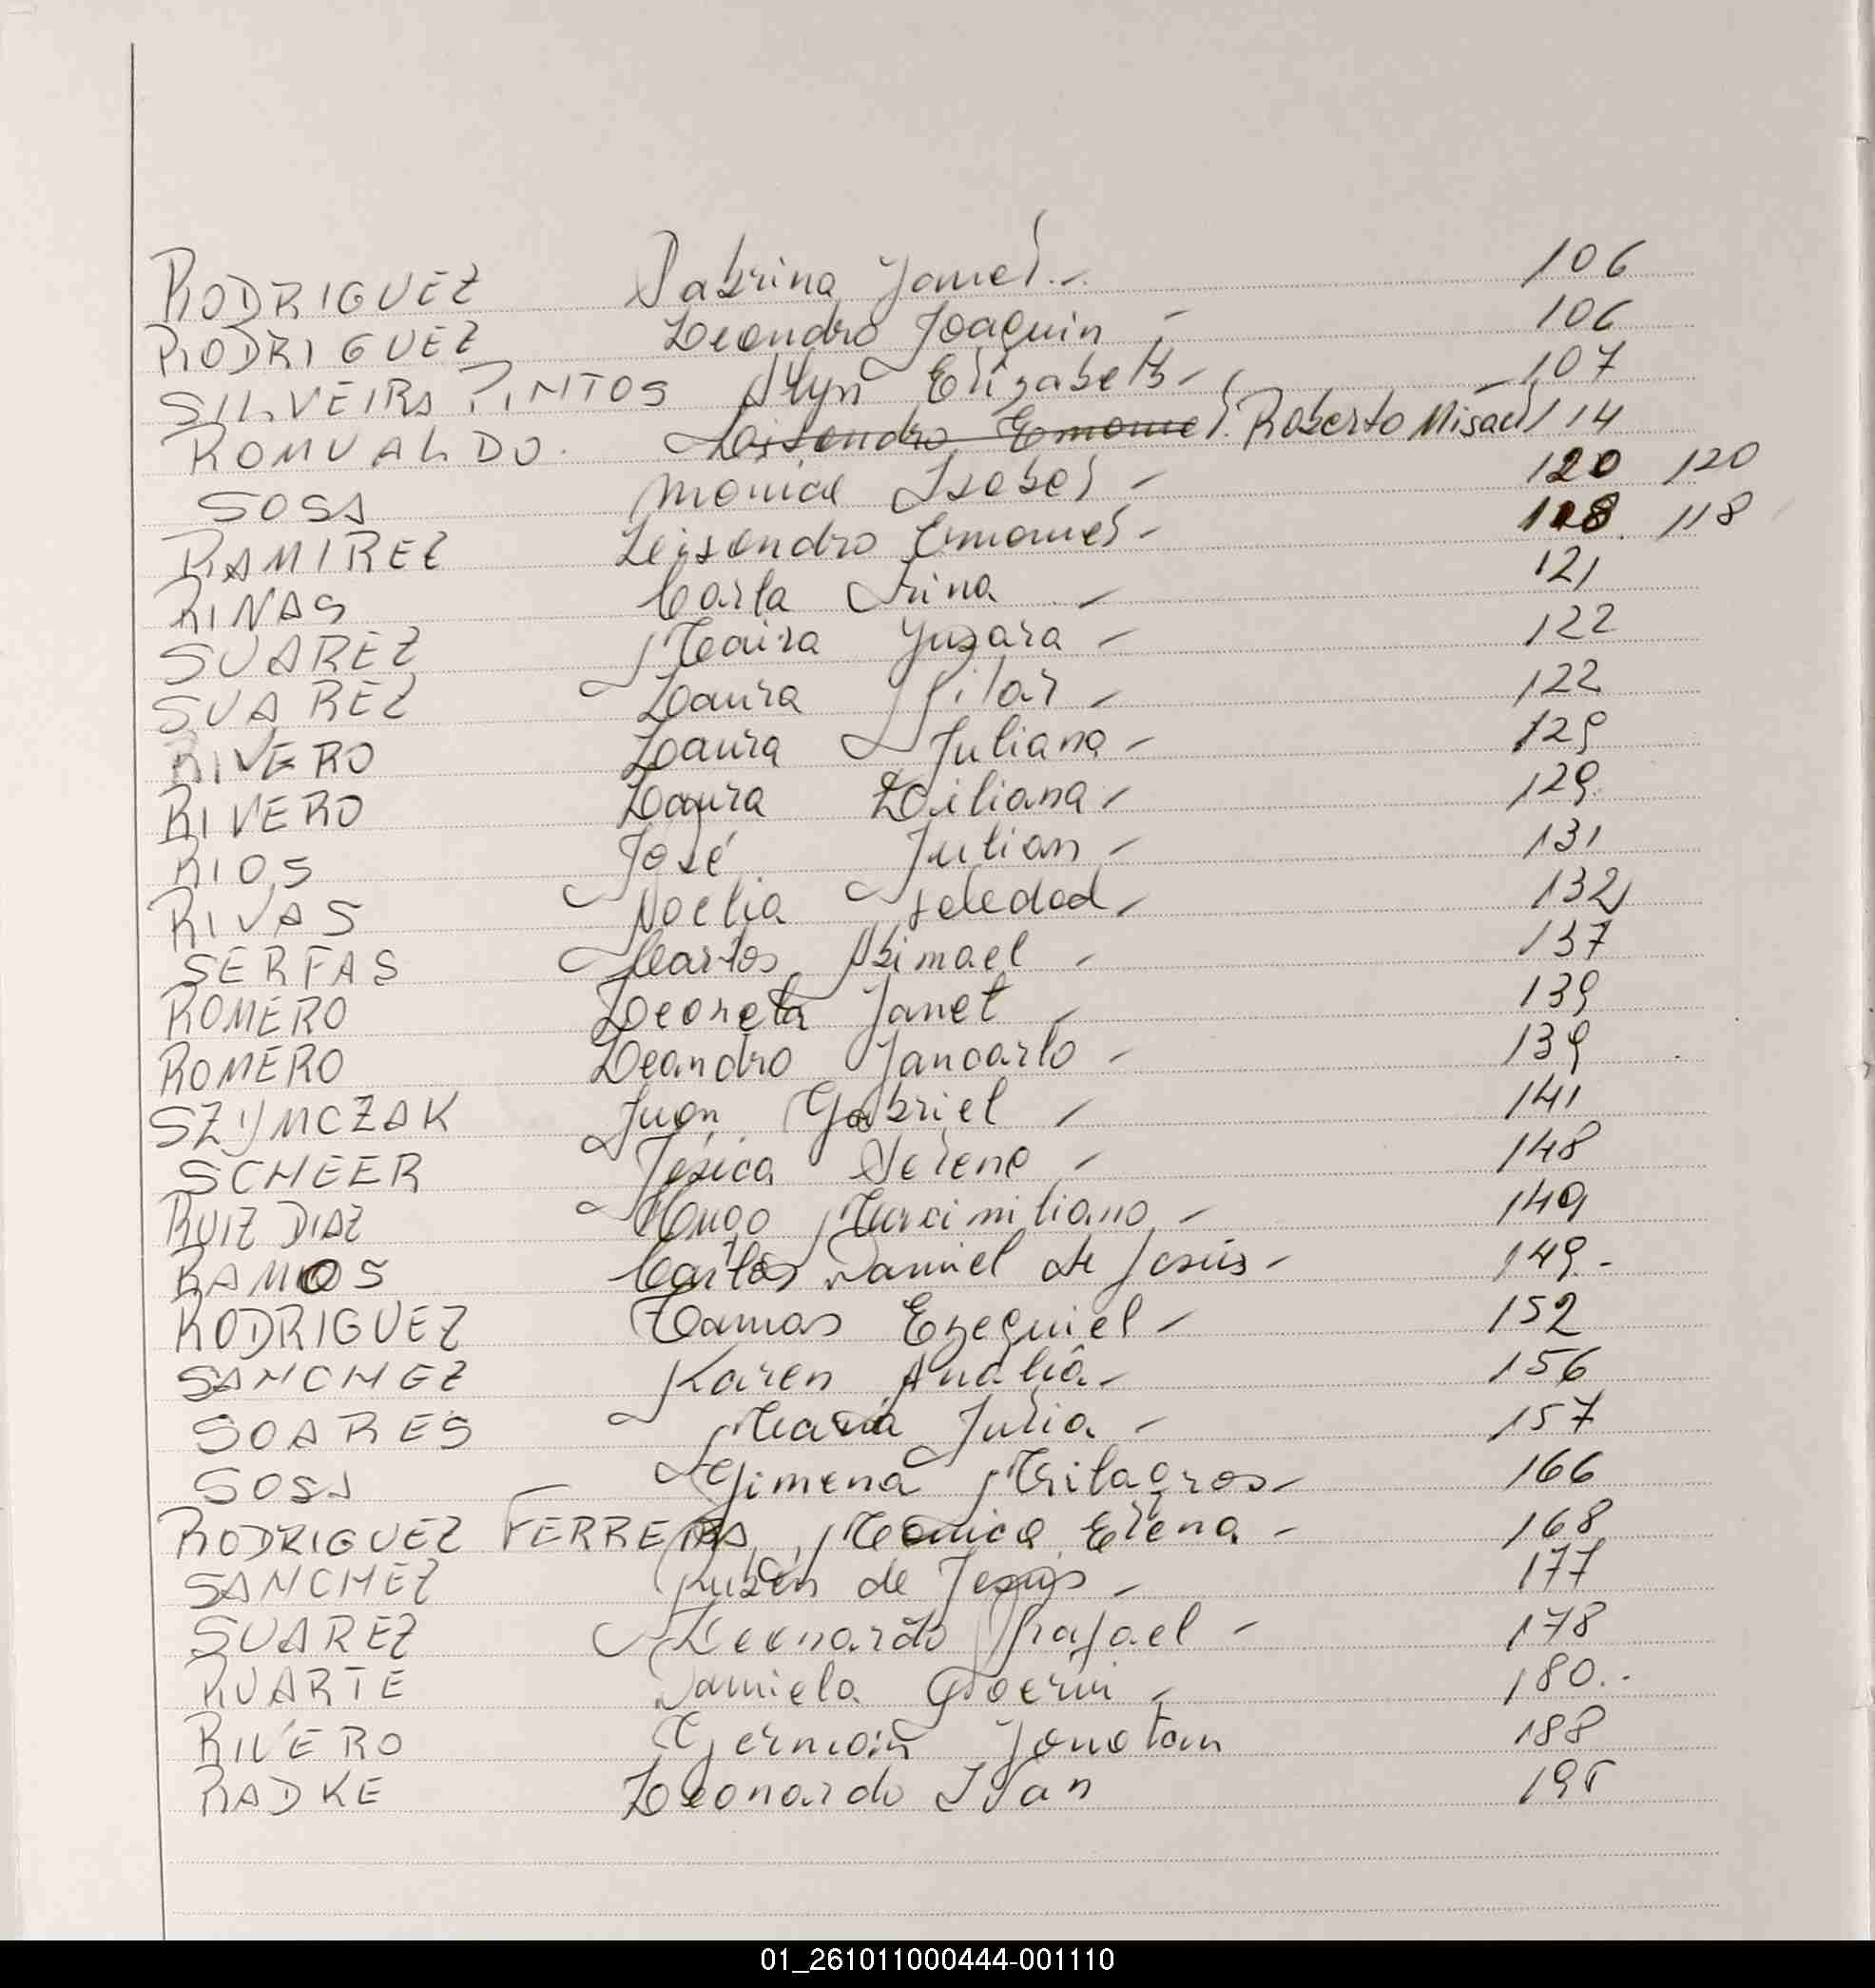 RODRIGUEZ Sabrina Yamel.- 106
RODRIGUEZ Leandro Joaquin - 106
SILVEIRA PINTOS Alyn Elizabeth - 107
ROMUALDO. Lisandro Emanuel. Roberto Misael 114
SOSA Monica Isabel - 120 120
RAMIREZ Lisandro Emanuel - 118. 118
RINAS Carla Irina - 121
SUAREZ Maira Yusara - 122
SUAREZ Laura Pilar - 122
RIVERO Laura Juliana - 129
RIVERO Laura Liliana - 129.
RIOS José Julian - 131
RIVAS Noelia Soledad - 132
SERFAS Carlos Abimael - 137
ROMERO Janet - 139
ROMERO Leandro Jancarlo - 139
SZYMCZAK Juan Gabriel - 141
SCHEER Jesica - 148
RUIZ DIAZ Hugo Maximiliano - 149
RAMOS Carlos Daniel de Jesús - 149.-
RODRIGUEZ Tomas Ezequiel - 152
SANCHEZ Karen Analia - 156
SOARES Maria Julia - 157
SOSA Gimena Milagros - 166
RODRIGUEZ FERREIRA Monica Elena - 168
SANCHEZ Rubén de Jesús - 177
SUAREZ Leonardo Rafael - 178
RUARTE Daniela - 180..
RIVERO German Jonatan 188
RADKE Leonardo Ivan
01_261011000444-001110